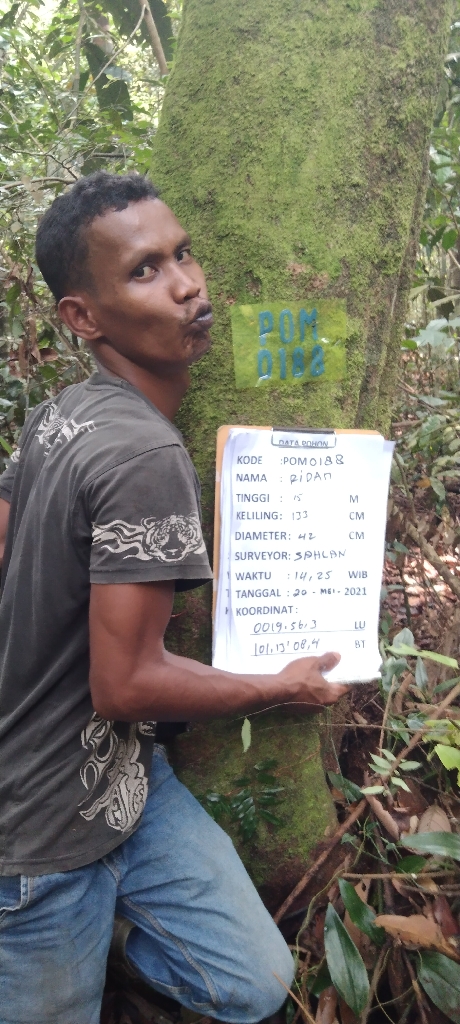 POM
0188
DATA POHON
KODE :POM0188
NAMA : RIDAN
TINGGI : 15 M
KELILING: 133 CM
DIAMETER: 42 CM
SURVEYOR: SAHLAN
WAKTU : 14,25 WIB
TANGGAL : 20 - MEI - 2021
KOORDINAT:
0019.56.3 LU
101.13'08,4 BT